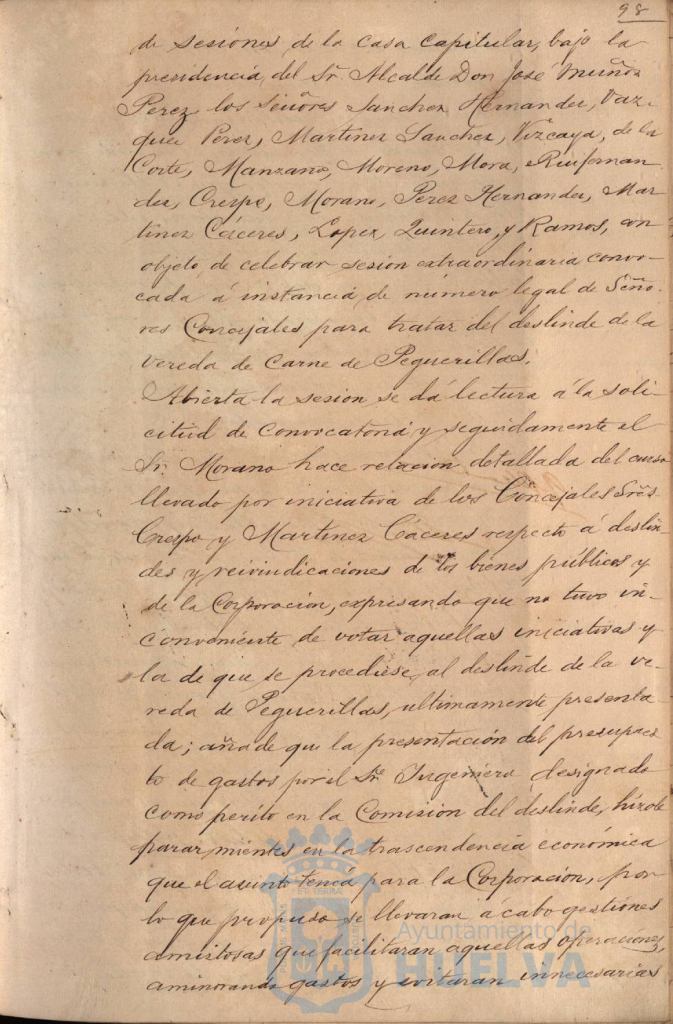 98
de sesiones de la casa capitular, bajo la
presidencia del Sr. Alcalde Don José Muñoz
Perez los Señores Sanchez Hernandez, Vaz-
quez Perez, Martinez Sanchez, Vizcaya, de la
Corte, Manzano, Moreno, Mora, Ruifernan-
dez, Crespo, Morano, Perez Hernandez, Mar-
tinez Cáceres, Lopez, Quintero, y Ramos, con
objeto de celebrar sesion extraordinaria convo-
cada á instancia de número legal de Seño-
res Concejales para tratar del deslinde de la
vereda de carne de Peguerillas.
Abierta la sesion se dá lectura á la soli-
citud de convocatoria y seguidamente el
Sr. Morano hace relacion detallada del curso
llevado por iniciativa de los Concejales Sres.
Crespo y Martinez Cáceres respecto á deslin-
des y reivindicaciones de los bienes públicos y
de la Corporacion, expresando que no tuvo in-
conveniente de votar aquellas iniciativas y
la de que se procediese al deslinde de la ve-
reda de Peguerillas, ultimamente presenta-
da; añade que la presentación del presupues-
to de gastos por el Sr. Ingeniero designado
como perito en la Comision del deslinde, hizole
parar mientes en la trascendencia económica
que el asunto tenia para la Corporación, por
lo que propuso se llevaran á cabo gestiones
amistosas que facilitaran aquellas operaciones,
aminorando gastos y evitaran innecesarias
Ayuntamiento de
HUELVA